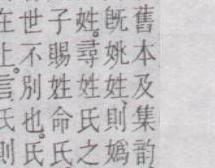 舊本及集韵
旣姚姓則嬀
姓。尋姓氏之
子賜姓命氏
世不別也。氏
在上。言氏則